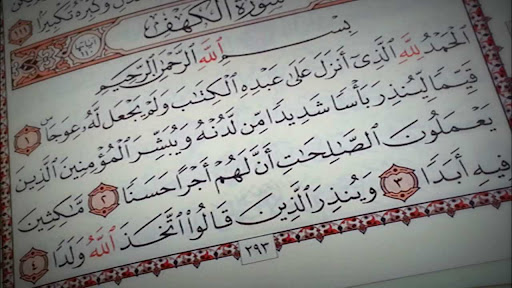 وَكَبِّرْهُ تَكْبِيرًا ١١١
سُورَةُ الْكَهْفِ
بِسْمِ اللَّهِ الرَّحْمَٰنِ الرَّحِيمِ
الْحَمْدُ لِلَّهِ الَّذِي أَنزَلَ عَلَىٰ عَبْدِهِ الْكِتَابَ وَلَمْ يَجْعَل لَّهُ عِوَجًا ۜ ١
قَيِّمًا لِّيُنذِرَ بَأْسًا شَدِيدًا مِّن لَّدُنْهُ وَيُبَشِّرَ الْمُؤْمِنِينَ الَّذِينَ
يَعْمَلُونَ الصَّالِحَاتِ أَنَّ لَهُمْ أَجْرًا حَسَنًا ٢ مَّاكِثِينَ
فِيهِ أَبَدًا ٣ وَيُنذِرَ الَّذِينَ قَالُوا اتَّخَذَ اللَّهُ وَلَدًا ٤
٢٩٣